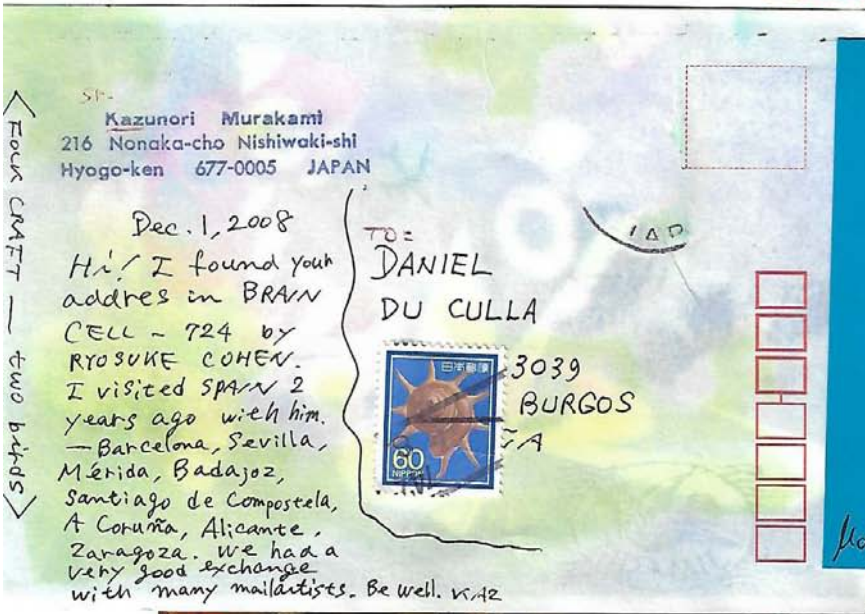 Kazunori Murakami
216 Nonaka-cho Nishiwaki-shi
Hyogo-ken 677-0005 JAPAN
Dec. 1, 2008
Hi! I found your
addres in BRAIN
CELL - 724 by
RYOSUKE COHEN.
I visited SPAIN 2
years ago with him.
— Barcelona, Sevilla,
Mérida, Badajoz,
Santiago de Compostela,
A Coruña, Alicante,
Zaragoza. We had a
very good exchange
with many mailartists. Be well. KAZ
TO:
DANIEL
DU CULLA
3039
BURGOS
ÑA
日本郵便
60
NIPPON
<FOLK CRAFT — two birds>